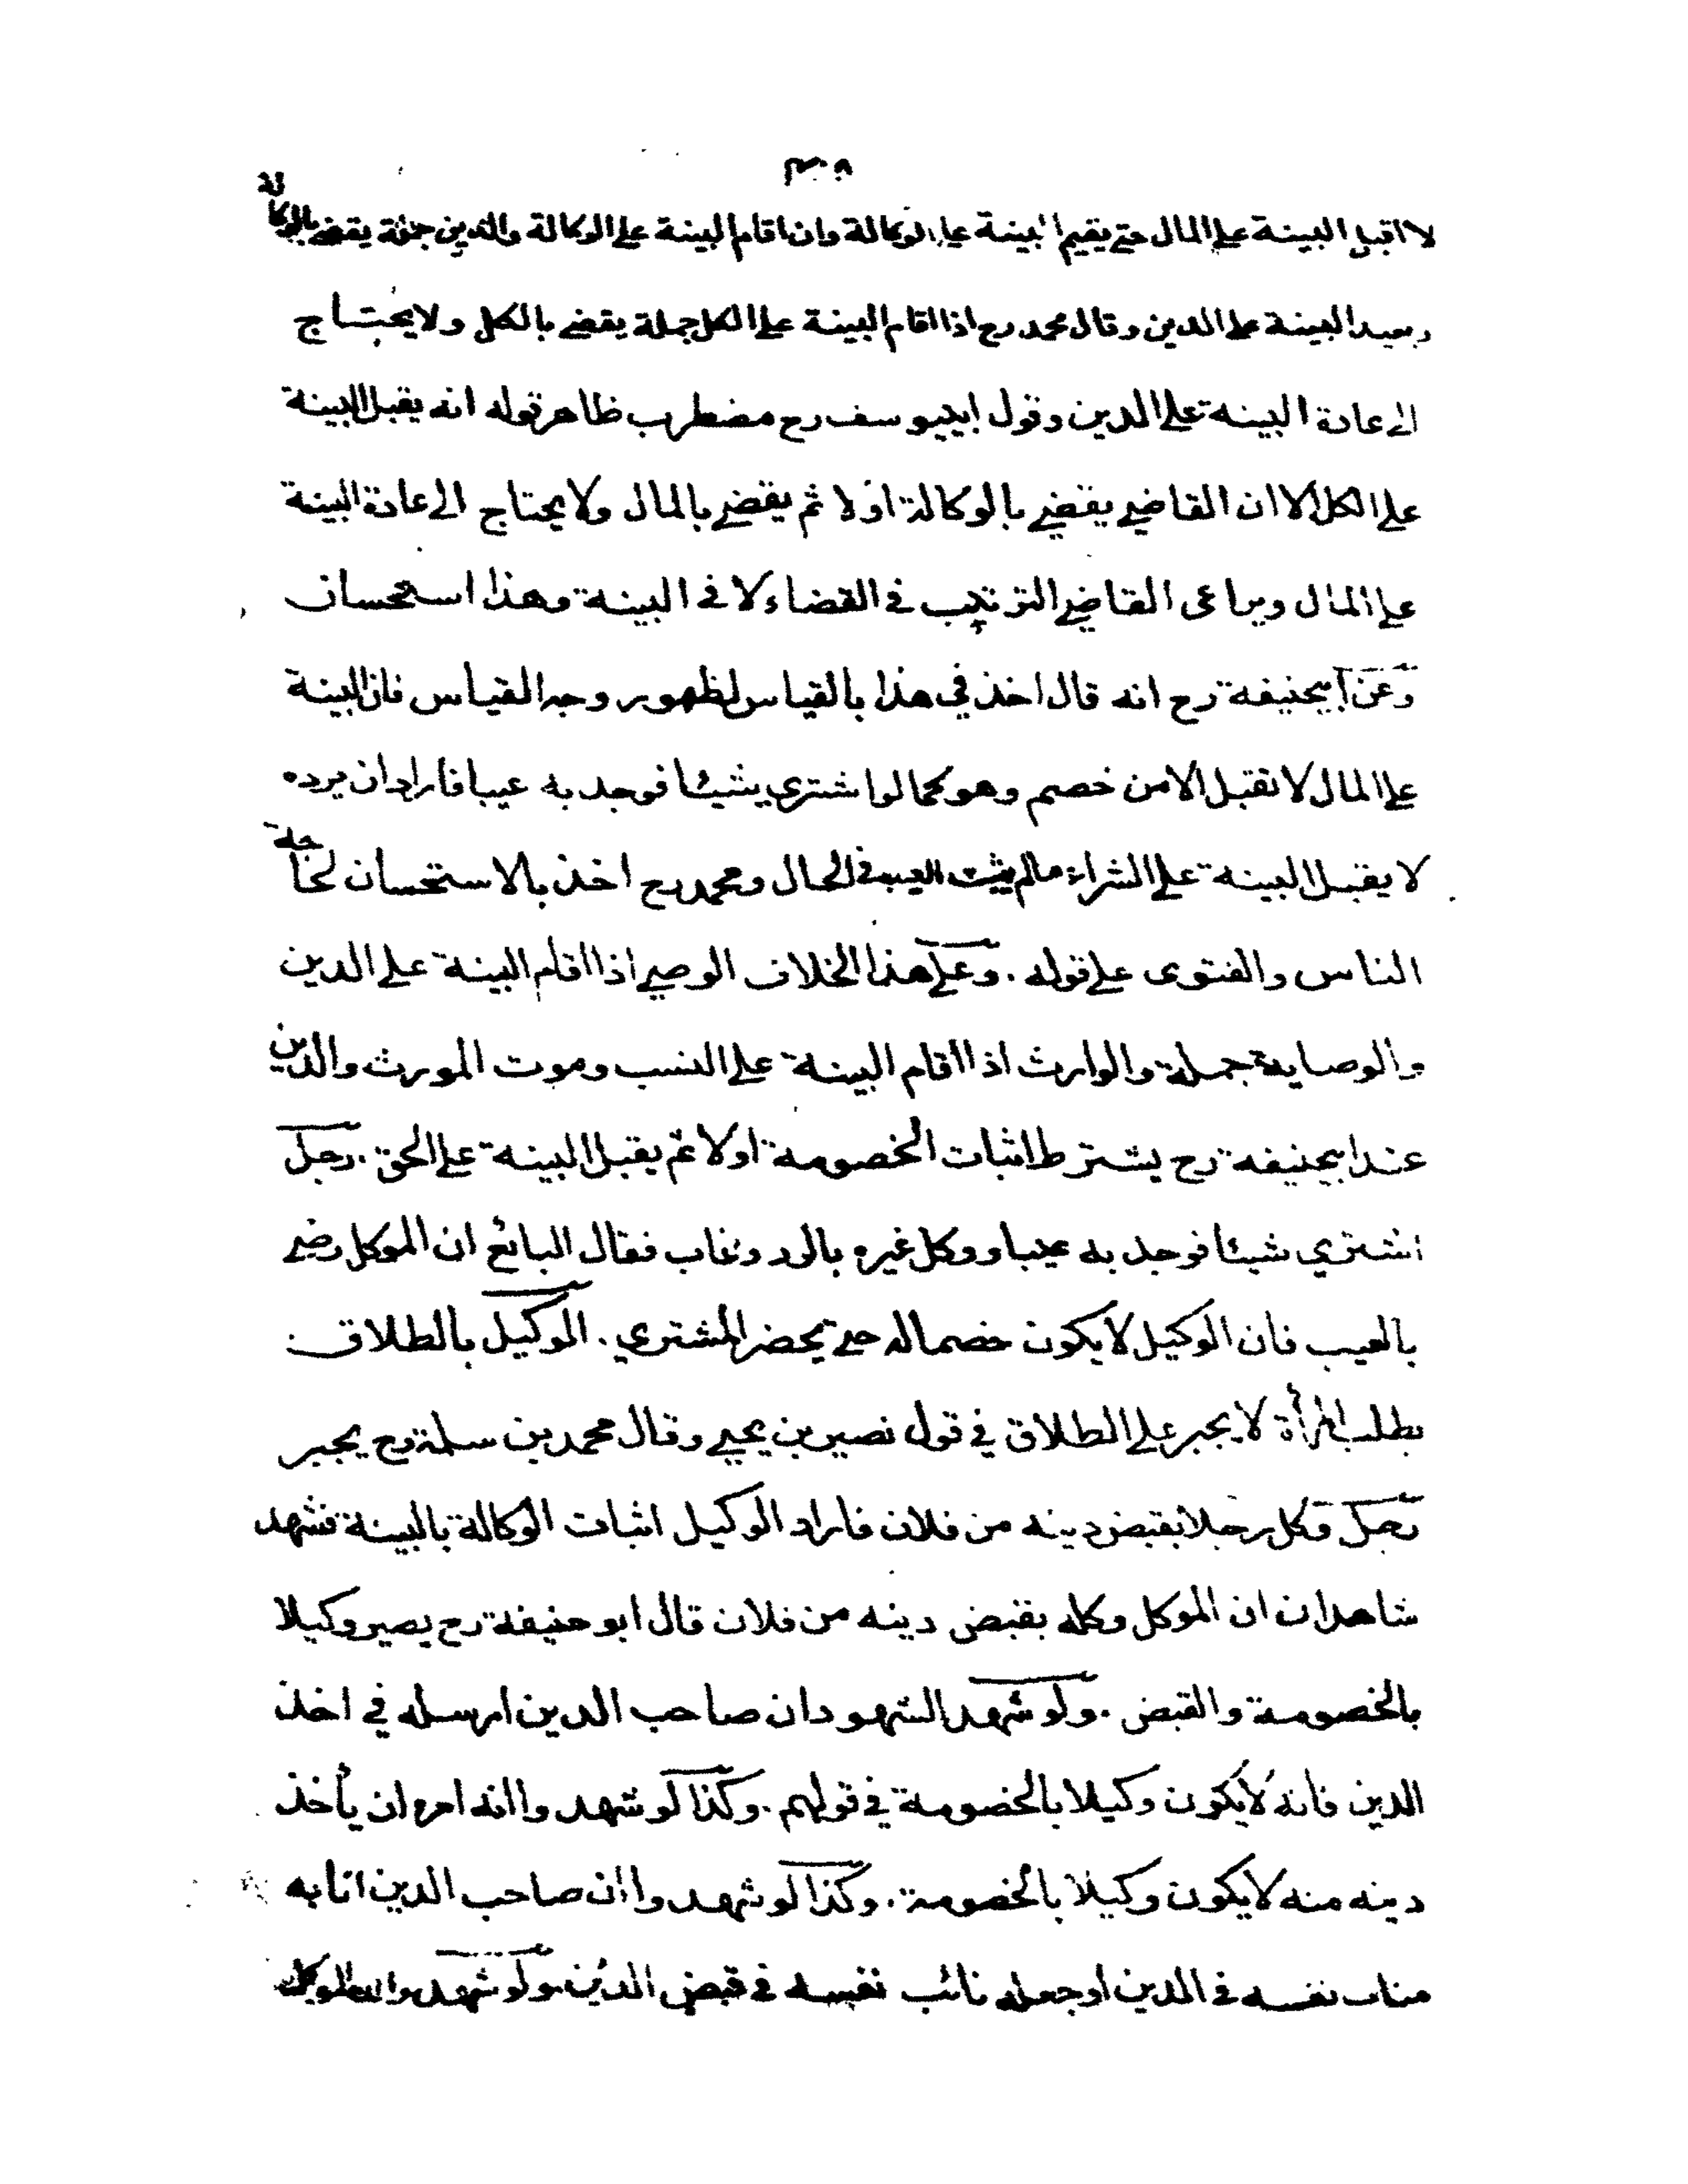 ٣٠٨
لا اقبل البينة على المال حتى يقيم البينة على الوكالة وان اقام البينة على الوكالة والدين جملة يقضى بالوكالة
ويعيد البينة على الدين وقال محمد رح اذا اقام البينة على الكل جملة يقضى بالكل ولا يحتاج
الى عادة البينة على الدين وقول ابيبوسف رح مضطرب ظاهر قوله انه يقبل البينة
على الكل الا ان القاضي يقضي بالوكالة اولا ثم يقضي بالمال ولا يحتاج الى عادة البينة
على المال ويراعى القاضي الترتيب في القضاء لا في البينة وهذا استحسان
وعن ابيحنيفة رح انه قال اخذ في هذا بالقياس لظهور وجه القياس فان البينة
على المال لا تقبل الا من خصم وهو كما لو اشتري شيئا فوجد به عيبا فاراد ان يرده
لا يقبل البينة على الشراء ما لم يثبت العيب في الحال ومحمد رح اخذ بالاستحسان لحاجة
الناس والفتوى على قوله . وعلى هذا الخلاف الوصي اذا اقام البينة على الدين
والوصاية جملة والوارث اذا اقام البينة على النسب وموت المورث والدين
عند ابيحنيفة رح يشترط اثبات الخصومة اولا ثم يقبل البينة على الحق . رجل
اشتري شيئا فوجد به عيبا ووكل غيره بالرد وغاب فقال البائع ان الموكل رضي
بالعيب فان الوكيل لا يكون خصما له حتى يحضر المشتري . الوكيل بالطلاق
بطلب المرأة لا يجبر على الطلاق في قول نصير بن يحيى وقال محمد بن سلمة رح يجبر
رجل وكل رجلا بقبض دينه من فلان فاراد الوكيل اثبات الوكالة بالبينة فشهد
شاهدان ان الموكل وكله بقبض دينه من فلان قال ابو حنيفة رح يصير وكيلا
بالخصومة والقبض . ولو شهد الشهود ان صاحب الدين ارسله في اخذ
الدين فانه لا يكون وكيلا بالخصومة في قولهم . وكذا لو شهدوا انه امره ان يأخذ
دينه منه لا يكون وكيلا بالخصومة . وكذا لو شهدوا ان صاحب الدين انابه
مناب نفسه في الدين او جعله نائب نفسه في قبض الدين ولو شهدوا ان الموكل